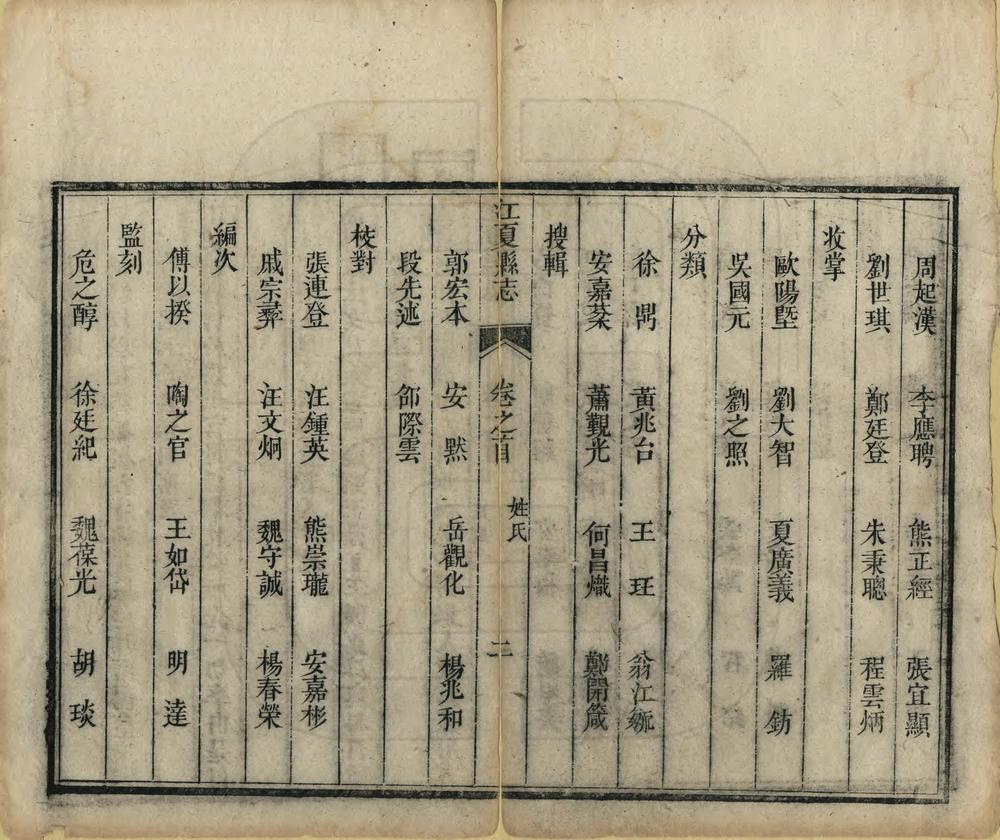 周起漢 李應聘 熊正經 張宜顯
劉世琪 鄭廷登 朱秉聰 程雲炳
收掌
歐陽曁 劉大智 夏廣義 羅鈁
吳國元 劉之照
分類
徐鼎 黃兆台 王玨 翁江
安嘉棻 蕭觀光 何昌熾 鄭開箴
搜輯
江夏縣志 卷之首 姓氏 二
郭宏本 安默 岳觀化 楊兆和
段先述 邰際雲
校對
張連登 汪鍾英 熊崇瓏 安嘉彬
戚宗彝 汪文炯 魏守誠 楊春榮
編次
傅以揆 陶之官 王如岱 明達
監刻
危之醇 徐廷紀 魏葆光 胡琰